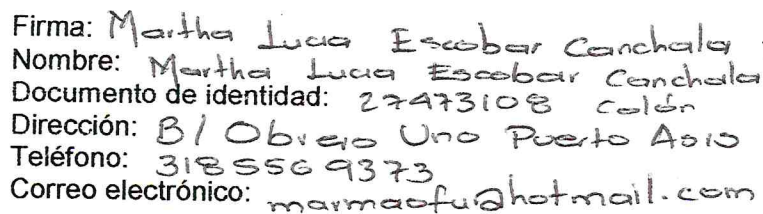 Firma: Martha Lucia Escobar Canchala
Nombre: Martha Lucia Escobar Canchala
Documento de identidad: 27473108 Colón
Dirección: B/ Obrero Uno Puerto Asis
Teléfono: 3185569373
Correo electrónico: marmaofu@hotmail.com